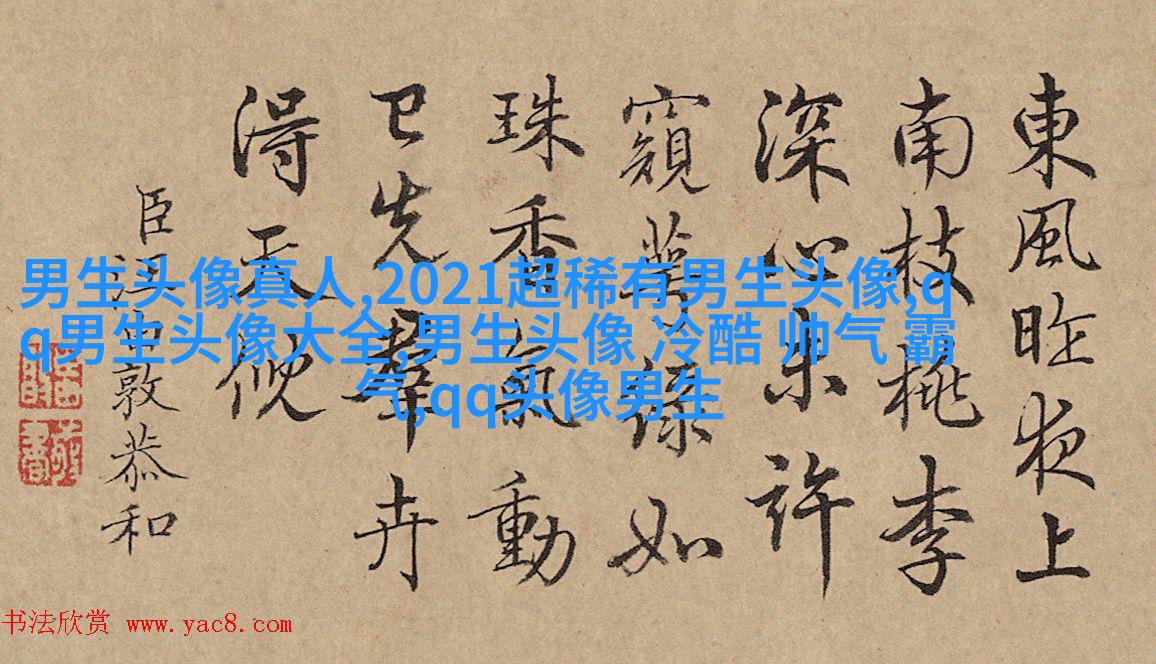 東風昨夜上
南枝桃李
深心未許
窺萼綠如
珠香氣動
已先羣卉
得天倪
臣汪由敦恭和
男生头像真人,2021超稀有男生头像,q
q男生头像大全,男生头像 冷酷 帅气 霸
气,qq头像男生
书法欣赏 www.yac8.com